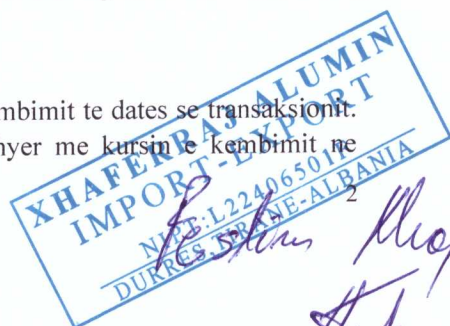 mbimit te dates se transaksionit.
nyer me kursin e kembimit ne
2
XHAFERRAJ ALUMIN
IMPORT-EXPORT
NIPT:L22406501R
DURRES-TIRANE-ALBANIA